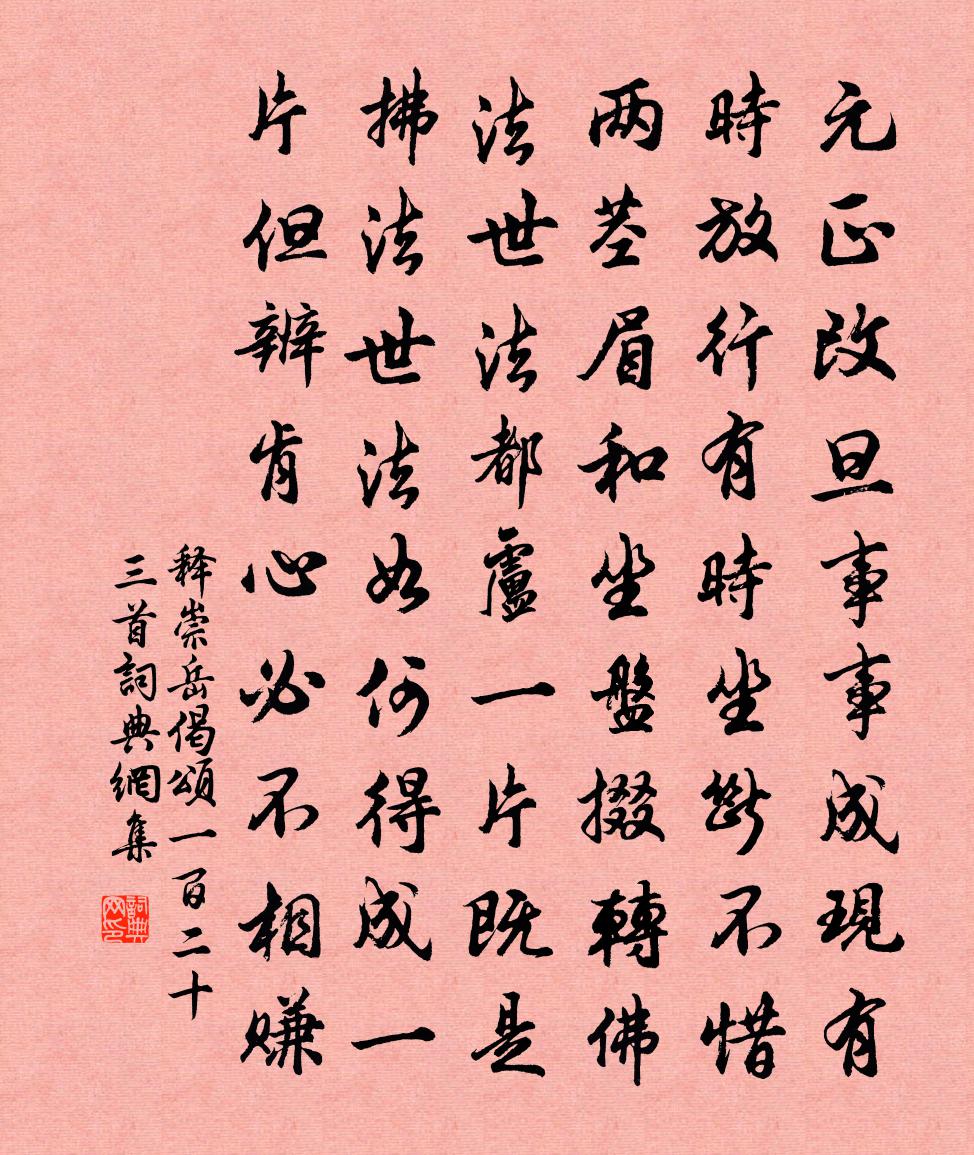 元正改旦事事成現有
時放行有時坐斷不惜
两茎眉和坐盤掇轉佛
法世法都盧一片既是
拂法世法如何得成一
片但辨肯心必不相賺
释崇岳偈頌一百二十
三首詞典網集
詞典网印